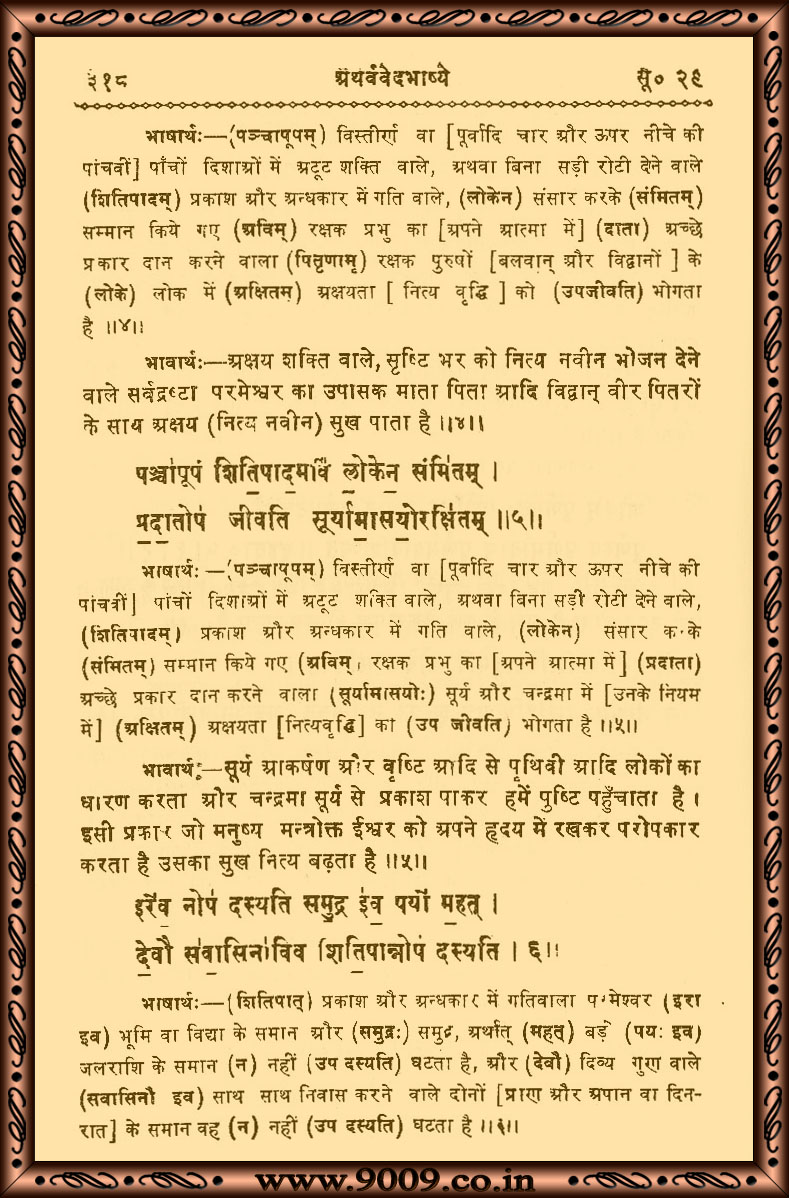 ३१८ अथर्ववेदभाष्ये सू० २९
भाषार्थः—(पञ्चापूपम्) विस्तीर्ण वा [पूर्वादि चार और ऊपर नीचे की
पांचवीं] पाँचों दिशाओं में अटूट शक्ति वाले, अथवा बिना सड़ी रोटी देने वाले
(शितिपादम्) प्रकाश और अन्धकार में गति वाले, (लोकेन) संसार करके (संमितम्)
सम्मान किये गए (अविम्) रक्षक प्रभु का [अपने आत्मा में] (दाता) अच्छे
प्रकार दान करने वाला (पितॄणाम्) रक्षक पुरुषों [बलवान् और विद्वानों ] के
(लोके) लोक में (अक्षितम्) अक्षयता [ नित्य वृद्धि ] को (उपजीवति) भोगता
है ॥४॥
भावार्थः—अक्षय शक्ति वाले, सृष्टि भर को नित्य नवीन भोजन देने
वाले सर्वद्रष्टा परमेश्वर का उपासक माता पिता आदि विद्वान् वीर पितरों
के साथ अक्षय (नित्य नवीन) सुख पाता है ॥४॥
पञ्चा॑पूपं शिति॒पाद॒मविं॑ लो॒केन॒ संमि॑तम् ।
प्र॒दा॒तोप॑ जीवति सूर्यामा॒सयो॒रक्षि॑तम् ॥५॥
भाषार्थः—(पञ्चापूपम्) विस्तीर्ण वा [पूर्वादि चार और ऊपर नीचे की
पांचवीं] पांचों दिशाओं में अटूट शक्ति वाले, अथवा बिना सड़ी रोटी देने वाले,
(शितिपादम्) प्रकाश और अन्धकार में गति वाले, (लोकेन) संसार करके
(संमितम्) सम्मान किये गए (अविम्) रक्षक प्रभु का [अपने आत्मा में] (प्रदाता)
अच्छे प्रकार दान करने वाला (सूर्यामासयोः) सूर्य और चन्द्रमा में [उनके नियम
में] (अक्षितम्) अक्षयता [नित्यवृद्धि] को (उप जीवति) भोगता है ॥५॥
भावार्थः—सूर्य आकर्षण और वृष्टि आदि से पृथिवी आदि लोकों का
धारण करता और चन्द्रमा सूर्य से प्रकाश पाकर हमें पुष्टि पहुँचाता है ।
इसी प्रकार जो मनुष्य मन्त्रोक्त ईश्वर को अपने हृदय में रखकर परोपकार
करता है उसका सुख नित्य बढ़ता है ॥५॥
इरे॑व॒ नोप॑ दस्यति समु॒द्र इ॑व॒ पयो॑ म॒हत् ।
दे॒वौ स॑वा॒सिना॑विव शिति॒पान्नोप॑ दस्यति । ६॥
भाषार्थः—(शितिपात्) प्रकाश और अन्धकार में गतिवाला परमेश्वर (इरा
इव) भूमि वा विद्या के समान और (समुद्रः) समुद्र, अर्थात् (महत्) बड़े (पयः इव)
जलराशि के समान (न) नहीं (उप दस्यति) घटता है, और (देवौ) दिव्य गुण वाले
(सवासिनौ इव) साथ साथ निवास करने वाले दोनों [प्राण और अपान वा दिन-
रात] के समान वह (न) नहीं (उप दस्यति) घटता है ॥६॥
www.9009.co.in